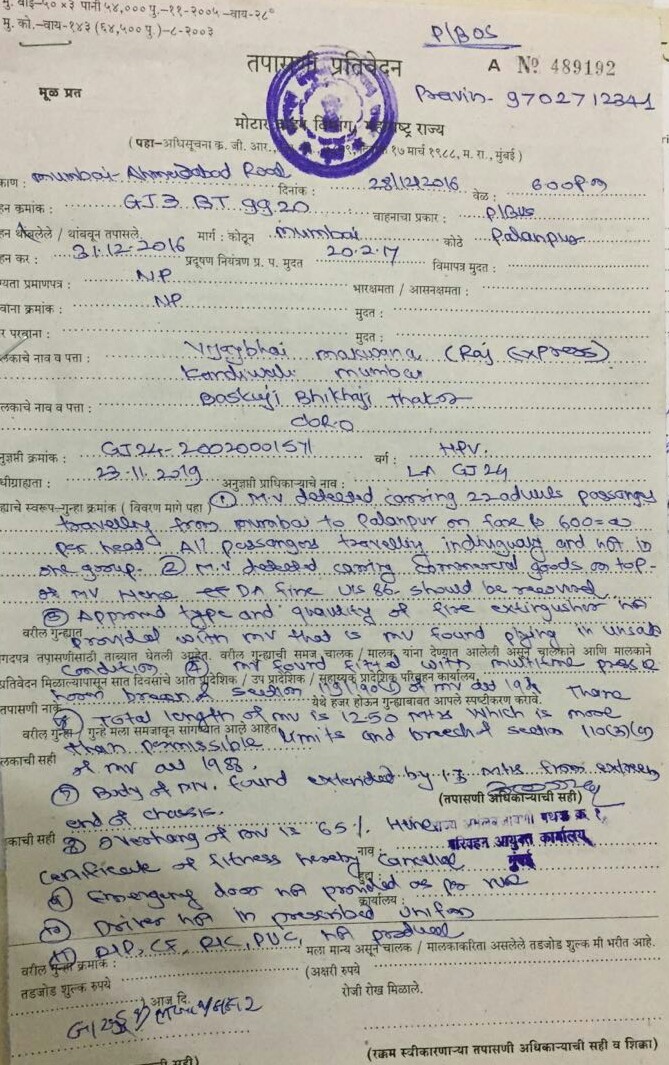 मु. वाई–५० ×३ पानी ५४,००० पु.–११–२००५–वाय–२८०
मु. को.–वाय–१४३ (६४,५०० पु.)–८–२००३
P/BOS
तपासणी प्रतिवेदन
A No 489192
मूळ प्रत
Pravin- 9702712341
मोटार वाहन विभाग, महाराष्ट्र राज्य
(पहा–अधिसूचना क्र. जी. आर., १७ मार्च १९८८, म. रा., मुंबई)
काण : Mumbai-Ahmedabad Road दिनांक : 28/12/2016 वेळ : 600Pm
हन क्रमांक : GJ3 BT 9920 वाहनाचा प्रकार : P/Bus
हन थांबलेले / थांबवून तपासले. मार्ग : कोठून Mumbai कोठे Palanpur
हन कर : 31.12.2016 प्रदूषण नियंत्रण प्र. प. मुदत 20.2.17 विमापत्र मुदत :
ग्यता प्रमाणपत्र : NP भारक्षमता / आसनक्षमता :
वाना क्रमांक : NP मुदत :
र परवाना : मुदत :
लकाचे नाव व पत्ता : Vijaybhai makwana (Raj Express)
Kandiwali mumbai
लकाचे नाव व पत्ता : Baskuji Bhikhaji thakor
नुज्ञप्ती क्रमांक : GJ24-20020001571 वर्ग : HPV.
धीग्राहाता : 23.11.2019 अनुज्ञप्ती प्राधिकाऱ्याचे नाव : LA GJ24
ह्याचे स्वरूप–गुन्हा क्रमांक ( विवरण मागे पहा ) ① M.V detected carring 22 adults passangers
travelling from mumbai to Palanpur on fare Rs 600=00
per head All passangers travelling individually and not in
one group. ② M.V detected carring Commercial goods on top
of MV Hence DA fine U/s 86 should be recovered
③ Approved type and quantity of fire extinguisher not
वरील गुन्ह्यात provided with mv that is mv found plying in unsafe
गदपत्र तपासणीसाठी ताब्यात घेतली आहेत. वरील गुन्ह्याची समज चालक / मालक यांना देण्यात आलेली असून चालकाने आणि मालकाने
Condition ④ mv found fitted with multitone pressure
प्रतिवेदन मिळाल्यापासून सात दिवसाचे आत प्रादेशिक / उप प्रादेशिक / सहाय्यक प्रादेशिक परिवहन कार्यालय,
horn breach section of mv act 1988
तपासणी नाके येथे हजर होऊन गुन्ह्याबाबत आपले स्पष्टीकरण करावे.
Total length of mv is 12.50 mtrs which is more
वरील गुन्हा / गुन्हे मला समजावून सांगण्यात आले आहेत
than permissible limits and breech of section 110
लकाची सही of mv act 1988.
⑦ Body of mv. found extended by 1.3 mtrs from extreme
end of chassis.
(तपासणी अधिकाऱ्याची सही)
काची सही ⑧ Overhang of mv is 65%. Hence
परिवहन आयुक्त कार्यालय,
मुंबई
नाव :
certificate of fitness hereby Cancelled
हुद्दा :
⑨ Emergency door not provided as per rule
कार्यालय :
⑩ Driver not in prescribed uniform
⑪ R/P, CF, R/C, PUC, not produced
वरील गुन्हा क्रमांक : मला मान्य असून चालक / मालकाकरिता असलेले तडजोड शुल्क मी भरीत आहे.
तडजोड शुल्क रुपये (अक्षरी रुपये
आज दि. रोजी रोख मिळाले.
सही)
(रक्कम स्वीकारणाऱ्या तपासणी अधिकाऱ्याची सही व शिक्का)